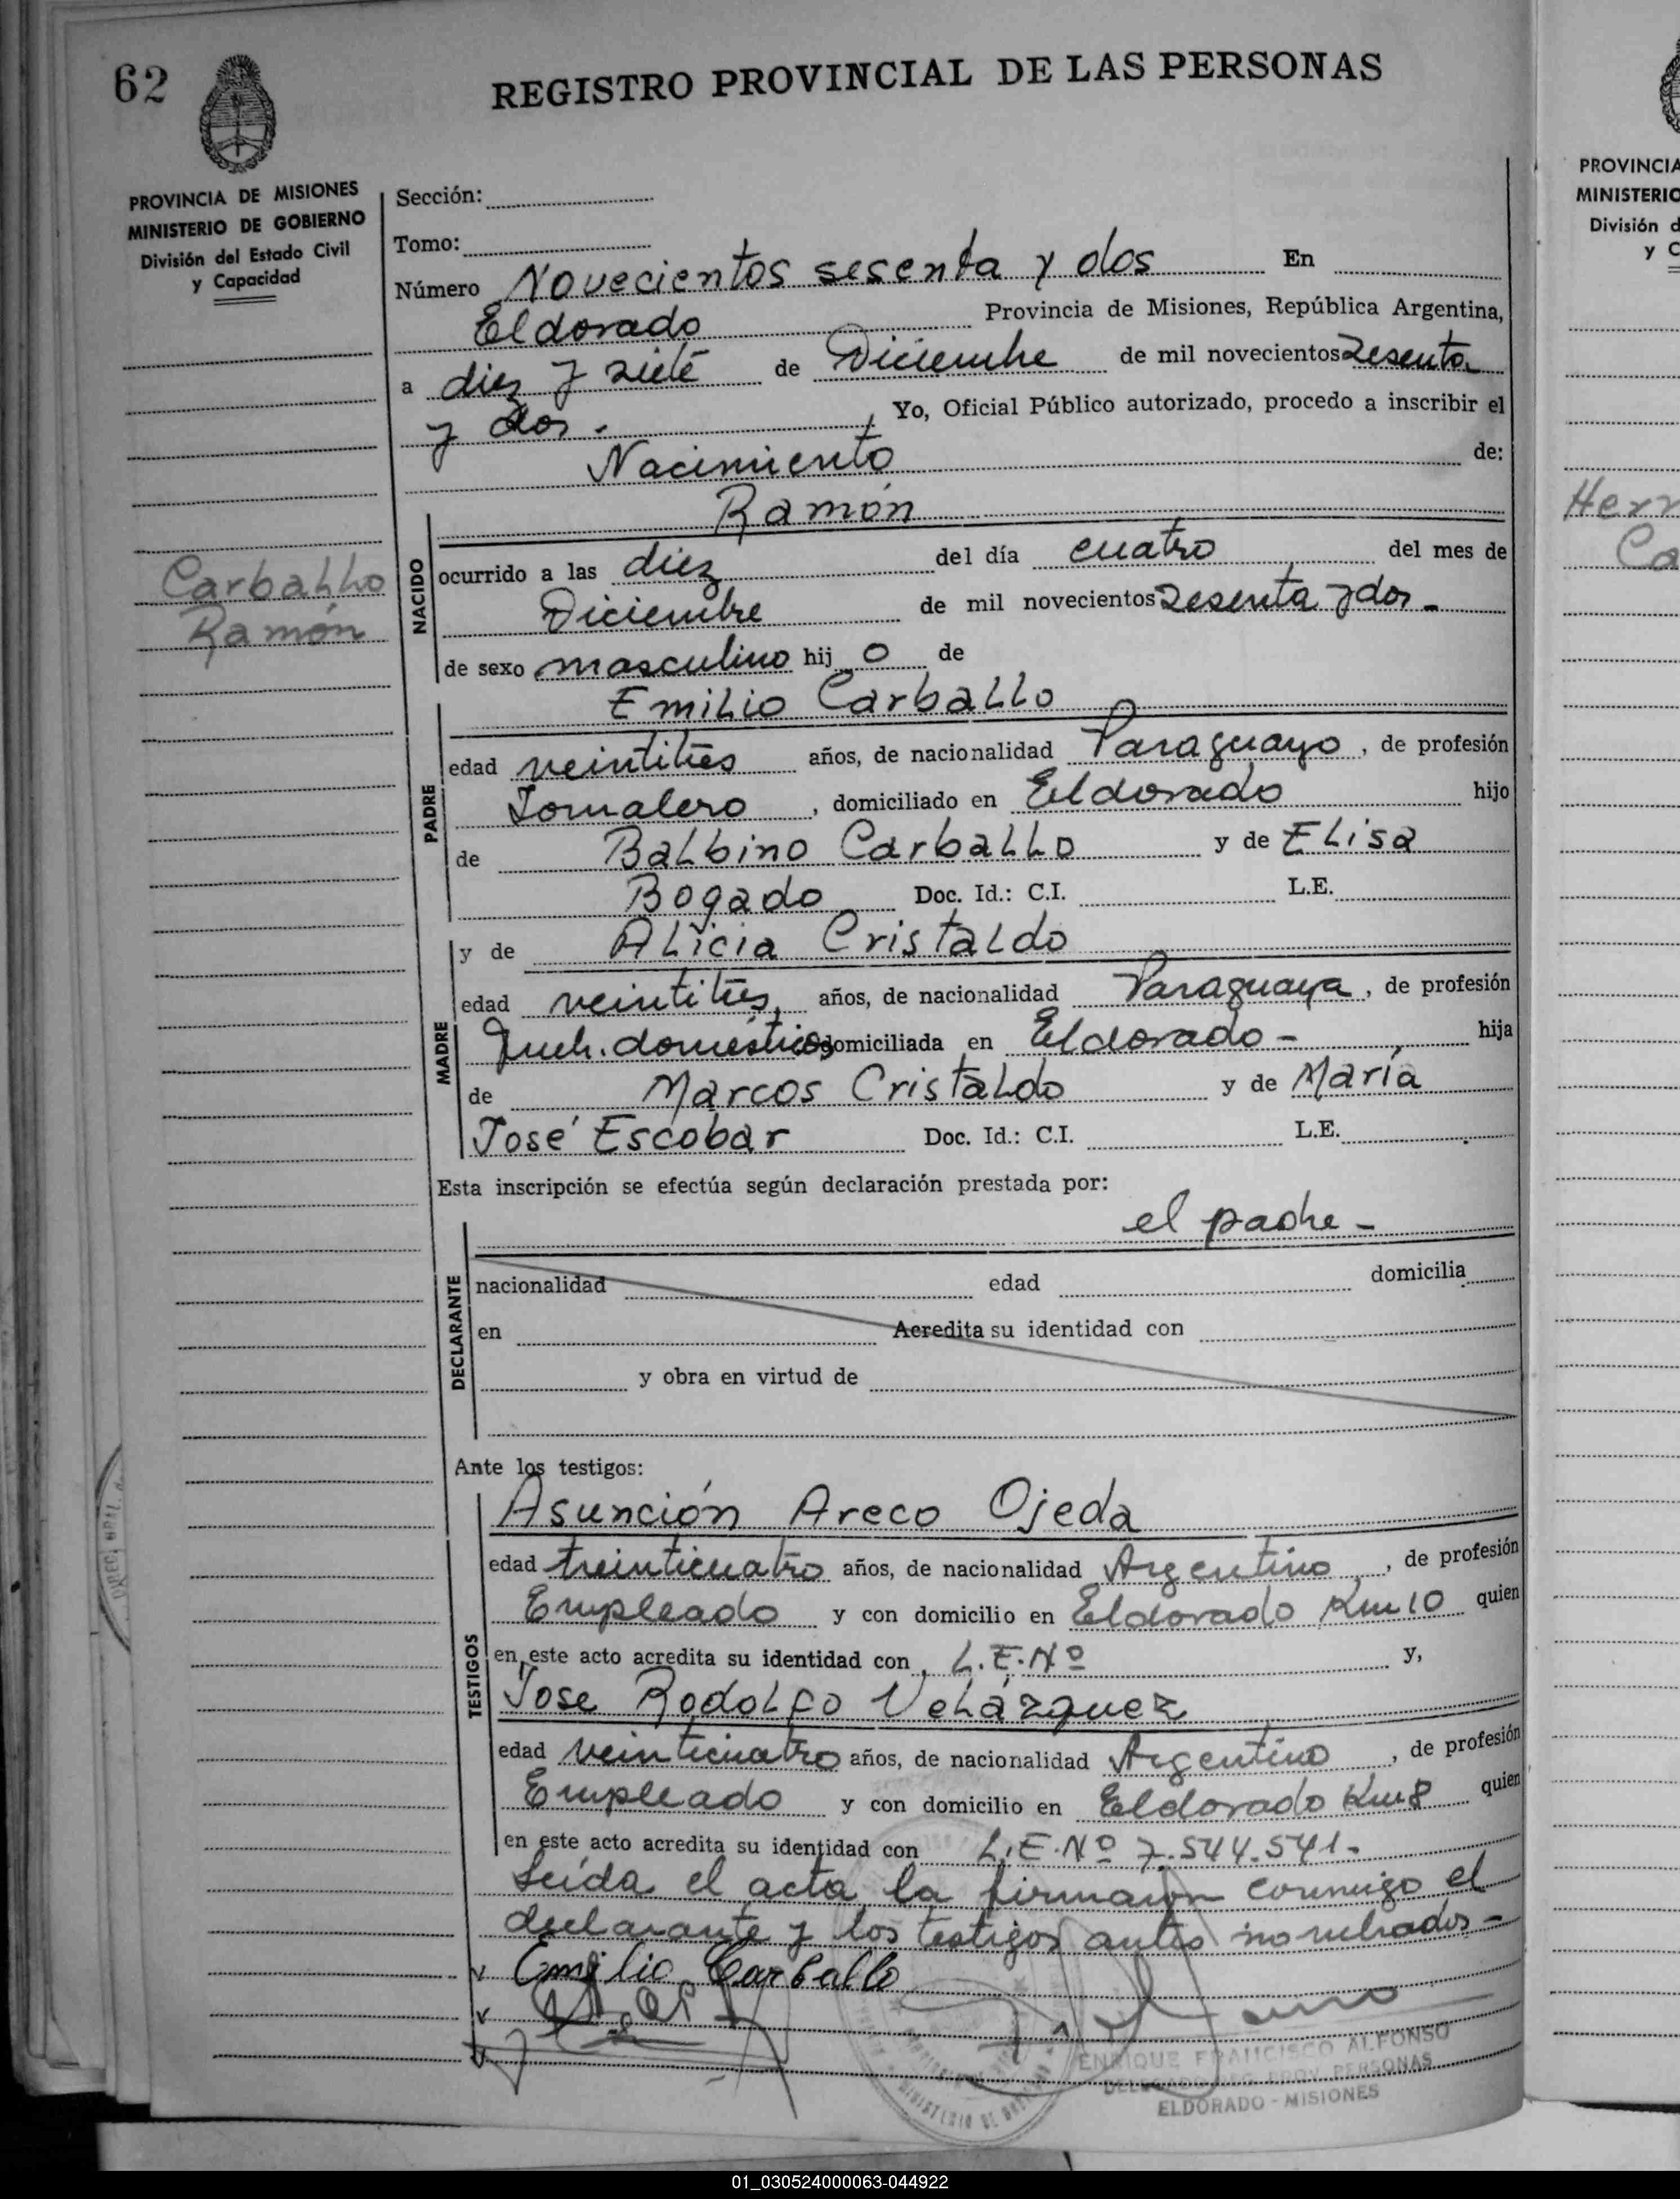 62
REGISTRO PROVINCIAL DE LAS PERSONAS
PROVINCIA DE MISIONES
MINISTERIO DE GOBIERNO
División del Estado Civil
y Capacidad
Carballo
Ramón
Sección:
Tomo:
Número Novecientos sesenta y dos En
Eldorado Provincia de Misiones, República Argentina,
a diez y siete de Diciembre de mil novecientos sesenta
y dos. Yo, Oficial Público autorizado, procedo a inscribir el
Nacimiento de:
Ramón
NACIDO
ocurrido a las diez del día cuatro del mes de
Diciembre de mil novecientos sesenta y dos -
de sexo masculino hij o de
Emilio Carballo
PADRE
edad veintitrés años, de nacionalidad Paraguayo, de profesión
Jornalero, domiciliado en Eldorado hijo
de Balbino Carballo y de Elisa
Bogado Doc. Id.: C.I. L.E.
y de Alicia Cristaldo
MADRE
edad veintitrés, años, de nacionalidad Paraguaya, de profesión
Queh. domésticos domiciliada en Eldorado - hija
de Marcos Cristaldo y de María
José Escobar Doc. Id.: C.I. L.E.
Esta inscripción se efectúa según declaración prestada por:
el padre -
DECLARANTE
nacionalidad edad domicilia
en Acredita su identidad con
y obra en virtud de
Ante los testigos:
TESTIGOS
Asunción Areco Ojeda
edad treinticuatro años, de nacionalidad Argentino, de profesión
Empleado y con domicilio en Eldorado Km 10 quien
en este acto acredita su identidad con L.E. Nº y,
Jose Rodolfo Velázquez
edad veinticuatro años, de nacionalidad Argentino, de profesión
Empleado y con domicilio en Eldorado Km 8 quien
en este acto acredita su identidad con L.E. Nº 7.544.541-
Leída el acta la firmaron conmigo el
declarante y los testigos antes nombrados -
Emilio Carballo
ENRIQUE FRANCISCO ALFONSO
DELEGADO REG. PROV. PERSONAS
ELDORADO - MISIONES
PROVINCIA
MINISTERIO
División d
y C
Herr
Ca
01_030524000063-044922